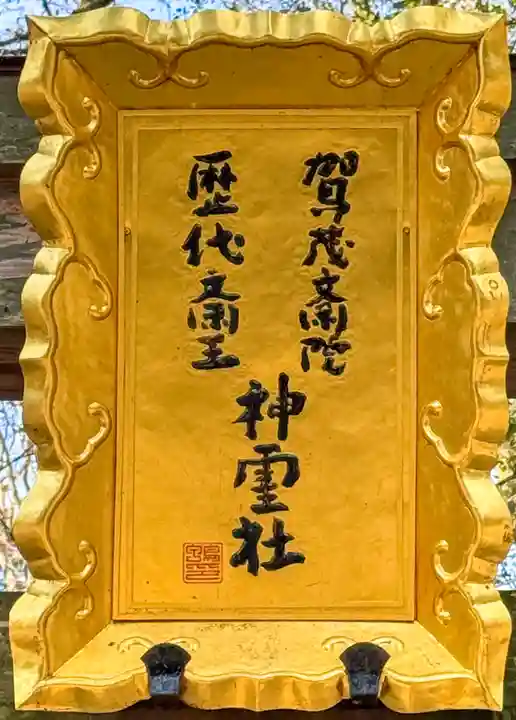 賀茂斎院
歴代斎王
神霊社